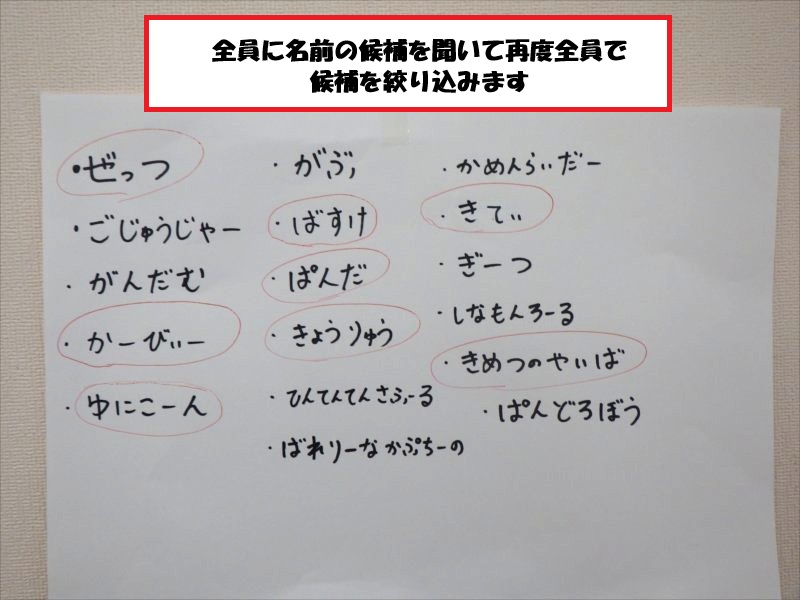 全員に名前の候補を聞いて再度全員で
候補を絞り込みます
・ぜっつ
・ごじゅうじゃー
・がんだむ
・かーびぃー
・ゆにこーん
・がぶ
・ばすけ
・ぱんだ
・きょうりゅう
・ひんてんてんさふーる
・ばれりーなかぷちーの
・かめんらいだー
・きてぃ
・ぎーつ
・しなもんろーる
・きめつのやいば
・ぱんどろぼう